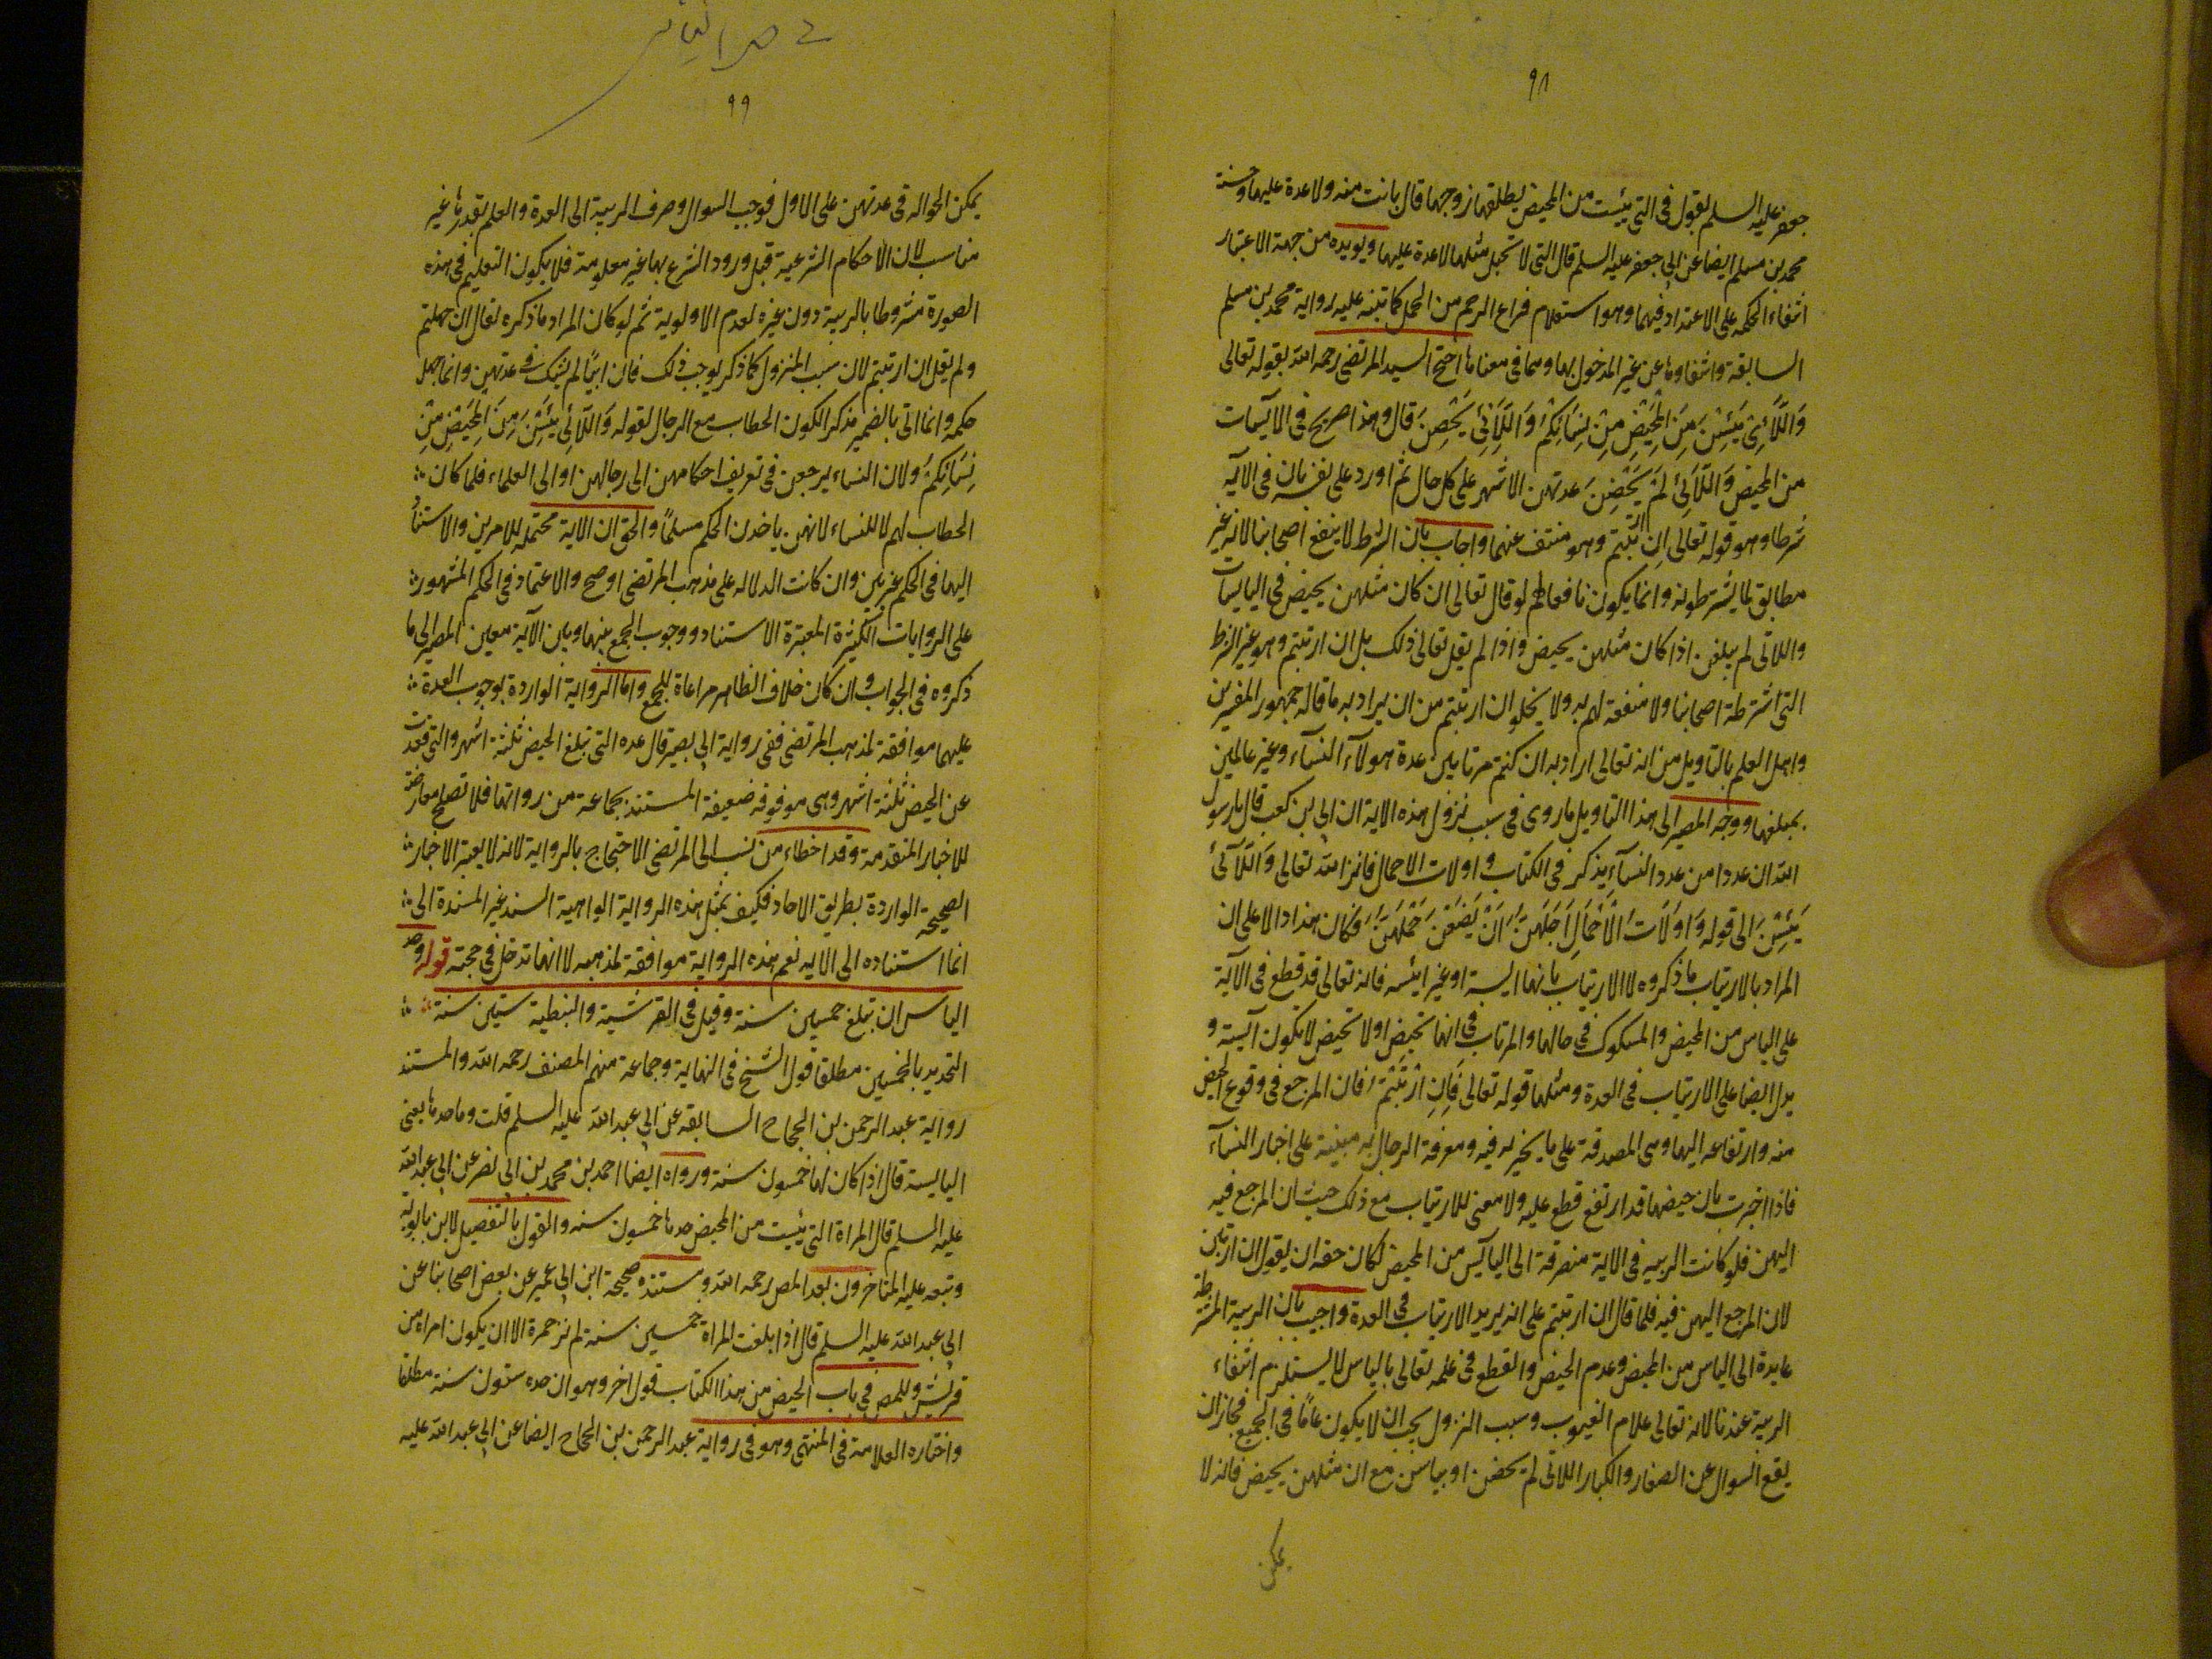 ٩٨
جعفر عليه السلم يقول في التي يئست من المحيض يطلقها زوجها قال بانت منه ولا عدة عليها وحسنة
محمد بن مسلم ايضا عن ابي جعفر عليه السلم قال التي لا تحبل مثلها لا عدة عليها ويؤيده من جهة الاعتبار
انتفاء الحكمة على الاعتداد فيهما وهو استعلام فراغ الرحم من الحمل كما تنبه عليه رواية محمد بن مسلم
السابقة وانتفاوها عن غير المدخول بها وهما في معناها احتج السيد المرتضى رحمه الله بقوله تعالى
وَاللَّائِي يَئِسْنَ مِنَ الْمَحِيضِ مِنْ نِسَائِكُمْ وَاللَّائِي يَحِضْنَ قال وهذا صريح في الآيسات
من المحيض وَاللَّائِي لَمْ يَحِضْنَ عدتهن الاشهر على كل حال ثم اورد على نفسه بان في الآية
شرطا وهو قوله تعالى اِنِ ارْتَبْتُمْ وهو منتف عنهما واجاب بان الشرط لا ينفع اصحابنا لانه غير
مطابق لما يشترطونه وانما يكون نافعا لهم لو قال تعالى ان كان مثلهن يحيض في اليايسات
واللاتي لم يبلغن اذا كان مثلهن يحيض واذا لم يقل تعالى ذلك بل ان ارتبتم وهو غير الشرط
التي اشترطه اصحابنا ولا منفعة لهم به ولا يخلو ان ارتبتم من ان يراد به ما قاله جمهور المفسرين
واهل العلم بالتاويل من انه تعالى اراد به ان كنتم مرتابين عدة هولآء النسآء وغير عالمين
بمبلغها ووجه المصير الى هذا التاويل ما روى في سبب نزول هذه الاية ان ابي بن كعب قال يا رسول
الله ان عددا من عدد النسآء يذكر في الكتاب واولات الاحمال فانزل الله تعالى وَاللَّآئِي
يَئِسْنَ الى قوله وَاُولَاتُ الْاَحْمَالِ اَجَلُهُنَّ اَنْ يَضَعْنَ حَمْلَهُنَّ فكان هذا دالا على ان
المراد بالارتياب ما ذكروه لا الارتياب بانها ايسة او غير ايئسه فانه تعالى قد قطع في الآية
على الياس من المحيض والمشكوك في حالها والمرتاب في انها تحيض او لا تحيض لا يكون آيسة و
يدل ايضا على الارتياب في العدة ومثلها قوله تعالى فَاِنِ ارْتَبْتُمْ فان المرجع في وقوع الحيض
منه وارتفاعه اليها وهى المصدقة على ما يخبر به فيه ومعرفة الرجال به مبنية على اخبار النسآء
فاذا اخبرت بان حيضها قد ارتفع قطع عليه ولا معنى للارتياب مع ذلك حيث ان المرجع فيه
اليهن فلو كانت الريبه في الاية منصرفة الى اليآيس من المحيض لكان حقه ان يقول ان ارتبن
لان المرجع اليهن فيه فلما قال ان ارتبتم علم انه يريد الارتياب في العدة واجيب بان الريبة المشترطة
عايدة الى الياس من المحيض وعدم الحيض والقطع في علمه تعالى بالياس لا يستلزم انتفاء
الريبة عندنا لانه تعالى علام الغيوب وسبب النزول يجب ان لا يكون عامًا في الجميع فجاز ان
يقع السوال عن الصغار والكبار اللاتي لم يحضن او يياسن مع ان مثلهن يحيض فانه لا
يمكن
٩٩
يمكن الحواله في عدتهن على الاول فوجب السوال وصرف الريبة الى العدة والعلم بقدرها غير
مناسب لان الاحكام الشرعية قبل ورود الشرع بها غير معلومة فلا يكون التعليم في هذه
الصورة مشروطا بالريبة دون غيره لعدم الاولوية ثم لو كان المراد ما ذكره لقال ان جهلتم
ولم يقل ان ارتبتم لان سبب النزول كما ذكر يوجب ذلك فان ابيًا لم يشك في عدتهن وانما جهل
حكمه وانما اتى بالضمير مذكر الكون الخطاب مع الرجال لقوله وَاللَّآئِي يَئِسْنَ مِنَ الْمَحِيضِ مِنْ
نِسَائِكُمْ ولان النساء يرجعن في تعريف احكامهن الى رجالهن او الى العلماء فلما كان
الخطاب لهم لا للنساء لانهن ياخذن الحكم مسلمًا والحق ان الاية محتملة للامرين والاستناد
اليها في الحكم غير بين وان كانت الدلاله على مذهب المرتضى اوضح والاعتماد في الحكم المشهور
على الروايات الكثيرة المعتبرة الاستناد ووجوب الجمع بينها وبين الآية معين المصير الى ما
ذكروه في الجواب وان كان خلاف الظاهر مراعاة للجمع واما الرواية الواردة بوجوب العدة
عليهما موافقة لمذهب المرتضى ففي رواية ابي بصير قال عده التي تبلغ الحيض ثلثة اشهر والتي قعدت
عن الحيض ثلثة اشهر وهى موقوفه ضعيفة المستند بجماعة من رواتها فلا تصلح معارضة
للاخبار المتقدمة وقد اخطاء من نسب الى المرتضى الاحتجاج بالرواية لانه لا يعتبر الاخبار
الصحيحة الواردة بطريق الاحاد فكيف بمثل هذه الرواية الواهية السند غير المسندة الى
انما استناده الى الاية نعم هذه الرواية موافقة لمذهبه لا انها تدخل في حجته قوله وحد
الياس ان تبلغ خمسين سنة وقيل في القرشية والنبطية ستين سنة
التحديد بالخمسين مطلقا قول الشيخ في النهاية وجماعة منهم المصنف رحمه الله والمستند
رواية عبد الرحمن بن الحجاج السابقه عن ابي عبد الله عليه السلم قلت وما حدها يعنى
اليايسة قال اذا كان لها خمسون سنة ورواه ايضا احمد بن محمد بن ابي نصر عن ابي عبد الله
عليه السلم قال المراة التي يئيست من المحيض حدها خمسون سنه والقول بالتفصيل لابن بابويه
وتبعه عليه المتاخرون بعد المص رحمه الله ومستنده صحيحة ابن ابي عمير عن بعض اصحابنا عن
ابي عبد الله عليه السلم قال اذا بلغت المراة خمسين سنة لم تر حمرة الا ان يكون امراة من
قريش وللمص في باب الحيض من هذا الكتاب قول اخر وهو ان حده ستون سنة مطلقا
واختاره العلامة في المنتهى وهو في رواية عبد الرحمن بن الحجاج ايضا عن ابي عبد الله عليه